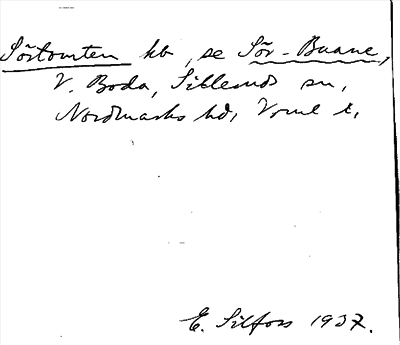 Sörtomten hb, se Sör-Baane,
V. Boda, Sillerud sn,
Nordmarks hd, Vrml l.
E. Silfors 1937.